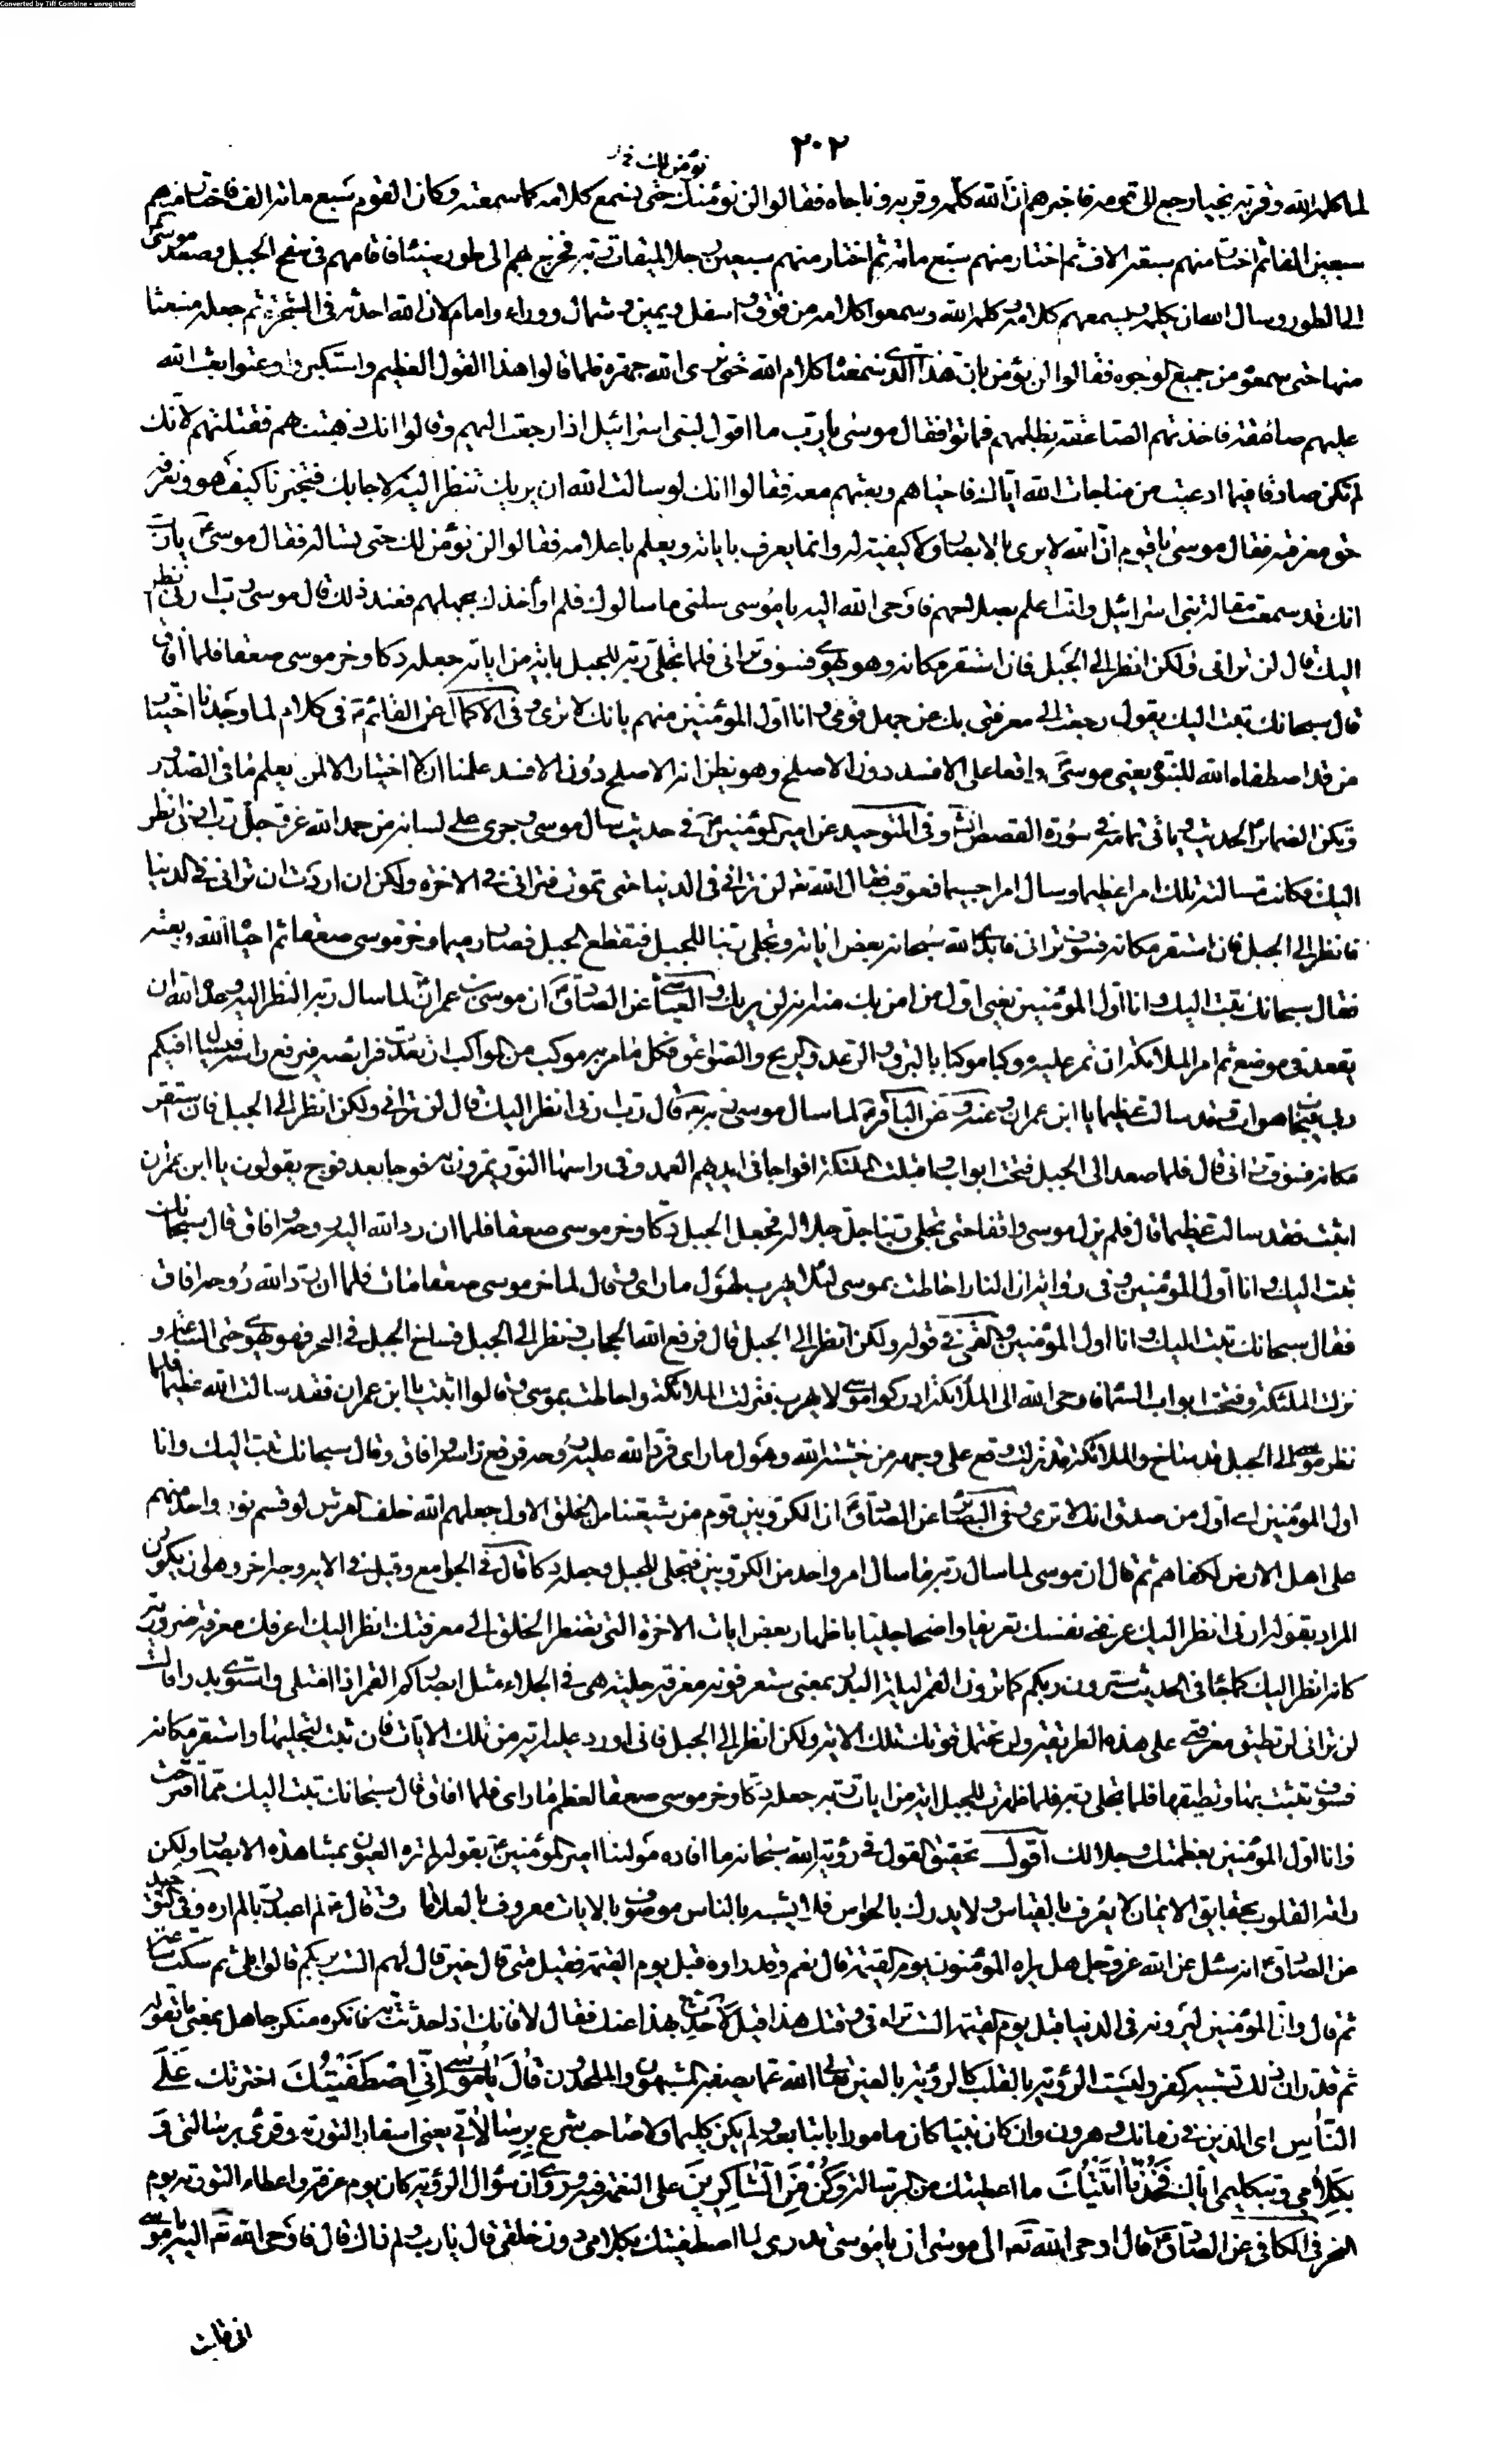 Converted by Tiff Combine - unregistered
٢٠٢
نؤمن لك خ ل
لما كلمه الله وقربه نجيا رجع الى قومه فاخبرهم ان الله كلمه وقربه وناجاه فقالوا لن نؤمنك حتى نسمع كلامه كما سمعته وكان القوم سبع مائة الف فاختار منهم
سبعين الفا ثم اختار منهم سبعة الاف ثم اختار منهم سبع مائة ثم اختار منهم سبعين رجلا لميقات ربه فخرج بهم الى طور سيناء فاقامهم في سفح الجبل وصعد موسى
الى الطور وسال الله ان يكلمه ويسمعهم كلامه وكلمه الله وسمعوا كلامه من فوق واسفل ويمين وشمال ووراء وامام لان الله احدثه في الشجرة ثم جعله منبعثا
منها حتى سمعوه من جميع الوجوه فقالوا لن نؤمن بان هذا الذي سمعناه كلام الله حتى نرى الله جهرة فلما قالوا هذا القول العظيم واستكبروا وعتوا بعث الله
عليهم صاعقة فاخذتهم الصاعقة بظلمهم فماتوا فقال موسى يا رب ما اقول لبني اسرائيل اذا رجعت اليهم وقالوا انك ذهبت بهم فقتلتهم لانك
لم تكن صادقا فيما ادعيت من مناجات الله اياك فاحياهم وبعثهم معه فقالوا انك لو سالت الله ان يريك تنظر اليه لاجابك فتخبرنا كيف هو ونعرفه
حق معرفته فقال موسى يا قوم ان الله لا يرى بالابصار ولا كيفية له وانما يعرف باياته ويعلم باعلامه فقالوا لن نؤمن لك حتى تساله فقال موسى يا رب
انك قد سمعت مقالة بني اسرائيل وانت اعلم بصلاحهم فاوحى الله اليه يا موسى سلني ما سالوك فلم اؤاخذك بجهلهم فعند ذلك قال موسى رب ارني انظر
اليك قال لن تراني ولكن انظر الى الجبل فان استقر مكانه وهو يهوي فسوف تراني فلما تجلى ربه للجبل باية من اياته جعله دكا وخر موسى صعقا فلما افاق
قال سبحانك تبت اليك يقول رجعت الى معرفتي بك عن جهل قومي وانا اول المؤمنين منهم بانك لا ترى وفي الاكمال عن القائم ع في كلام له لما وجدنا اختيار
من قد اصطفاه الله للنبوة يعني موسى واقعا على الافسد دون الاصلح وهو يظن انه الاصلح دون الافسد علمنا ان لا اختيار الا لمن يعلم ما في الصدور
وتكن الضمائر الحديث وياتي تمامه في سورة القصص انشاء وفي التوحيد عن امير المؤمنين في حديث سال موسى وجرى على لسانه من حمد الله عز وجل رب ارني انظر
اليك فكانت مسالته تلك امرا عظيما وسال امرا جسيما فعوقب فقال الله تع لن تراني في الدنيا حتى تموت فتراني في الاخرة ولكن ان اردت ان تراني في الدنيا
فانظر الى الجبل فان استقر مكانه فسوف تراني فابدى الله سبحانه بعض اياته وتجلى ربنا للجبل فتقطع الجبل فصار رميما وخر موسى صعقا ثم احياه الله وبعثه
فقال سبحانك تبت اليك وانا اول المؤمنين يعني اول من امن بك منهم انه لن يريك والعياشي عن الصادق ان موسى بن عمران لما سال ربه النظر اليه وعده الله ان
يقعد في موضع ثم امر الملائكة ان تمر عليه موكبا موكبا بالبرق والرعد والريح والصواعق فكلما مر به موكب من المواكب ارتعدت فرائصه فيرفع راسه فيسال افيكم
ربي فيجاب هو ات وقد سالت عظيما يا ابن عمران وعنه وعن الباقر ع لما سال موسى ربه قال رب ارني انظر اليك قال لن تراني ولكن انظر الى الجبل فان استقر
مكانه فسوف تراني قال فلما صعد الى الجبل فتحت ابواب السماء واقبلت الملئكة افواجا في ايديهم العمد وفي راسها النور يمرون به فوجا بعد فوج يقولون يا ابن عمران
اثبت فقد سالت عظيما قال فلم يزل موسى واقفا حتى تجلى ربنا جل جلاله فجعل الجبل دكا وخر موسى صعقا فلما ان رد الله اليه روحه وافاق قال سبحانك
تبت اليك وانا اول المؤمنين وفي رواية ان النار احاطت بموسى لئلا يهرب لهول ما راى وقال لما خر موسى صعقا مات فلما ان رد الله روحه افاق
فقال سبحانك تبت اليك وانا اول المؤمنين والقمي في قوله ولكن انظر الى الجبل قال فرفع الله الحجاب ونظر الى الجبل فساخ الجبل في البحر فهو يهوي حتى الساعة و
نزلت الملئكة وفتحت ابواب السماء فاوحى الله الى الملائكة ادركوا موسى لا يهرب فنزلت الملائكة واحاطت بموسى وقالوا اثبت يا ابن عمران فقد سالت الله عظيما فلما
نظر موسى الى الجبل قد ساخ والملائكة قد نزلت وقع على وجهه من خشية الله وهول ما راى فرد الله عليه روحه فرفع راسه وافاق وقال سبحانك تبت اليك وانا
اول المؤمنين اي اول من صدق انك لا ترى وفي البصائر عن الصادق ان الكروبيين قوم من شيعتنا من الخلق الاول جعلهم الله خلف العرش لو قسم نور واحد منهم
على اهل الارض لكفاهم ثم قال ان موسى لما سال ربه ما سال امر واحدا من الكروبيين فتجلى للجبل وجعله دكا قال في الجوامع وقيل في الاية وجه اخر وهو ان يكون
المراد بقوله ارني انظر اليك عرفني نفسك تعريفا واضحا جليا باظهار بعض ايات الاخرة التي تضطر الخلق الى معرفتك انظر اليك اعرفك معرفة ضرورية
كاني انظر اليك كما جاء في الحديث سترون ربكم كما ترون القمر ليلة البدر بمعنى ستعرفونه معرفة جلية هي في الجلاء مثل ابصاركم القمر اذا امتلى واستوى بدرا قال
لن تراني لن تطيق معرفتي على هذه الطريقة ولن تحتمل قوتك تلك الاية ولكن انظر الى الجبل فاني اورد عليه اية من تلك الايات فان ثبت لتجليها واستقر مكانه
فسوف تثبت بها وتطيقها فلما تجلى ربه فلما ظهرت للجبل اية من ايات ربه جعله دكا وخر موسى صعقا لعظم ما راى فلما افاق قال سبحانك تبت اليك مما اقترحت
وانا اول المؤمنين بعظمتك وجلالك اقول تحقيق القول في رؤية الله سبحانه ما افاده مولينا امير المؤمنين ع بقوله لم تره العيون بمشاهدة الابصار ولكن
راته القلوب بحقايق الايمان لا يعرف بالقياس ولا يدرك بالحواس فلا يشبه بالناس موصوف بالايات معروف بالعلامات وقال ع لم اعبد ربا لم اره وفي التوحيد
عن الصادق ع انه سئل عن الله عز وجل هل يراه المؤمنون يوم القيمة قال نعم وقد راوه قبل يوم القيمة فقيل متى قال حين قال لهم الست بربكم قالوا بلى ثم سكت ساعة
ثم قال وان المؤمنين ليرونه في الدنيا قبل يوم القيمة الست تراه في وقتك هذا قيل فاحدث بهذا عنك فقال لا فانك اذا حدثت به فانكره منكر جاهل بمعنى ما تقوله
ثم قدر ان ذلك تشبيه كفر وليست الرؤية بالقلب كالرؤية بالعين تعالى الله عما يصفه المشبهون والملحدون قَالَ يَا مُوسَى إِنِّي اصْطَفَيْتُكَ اخترتك عَلَى
النَّاسِ اي الذين في زمانك وهرون وان كان نبيا كان مامورا باتباعه ولم يكن كليما ولا صاحب شرع بِرِسَالَاتِي يعني اسفار التورية وقرئ برسالتي وَ
بِكَلَامِي وبتكليمي اياك فَخُذْ مَا آتَيْتُكَ ما اعطيتك من الرسالة وَكُنْ مِنَ الشَّاكِرِينَ على النعمة فيه وروي ان سؤال الرؤية كان يوم عرفة واعطاء التورية يوم
النحر في الكافي عن الصادق ع قال اوحى الله تع الى موسى ان يا موسى تدري لما اصطفيتك بكلامي دون خلقي قال يا رب ولم ذاك قال فاوحى الله تع اليه يا موسى
اني قلبت